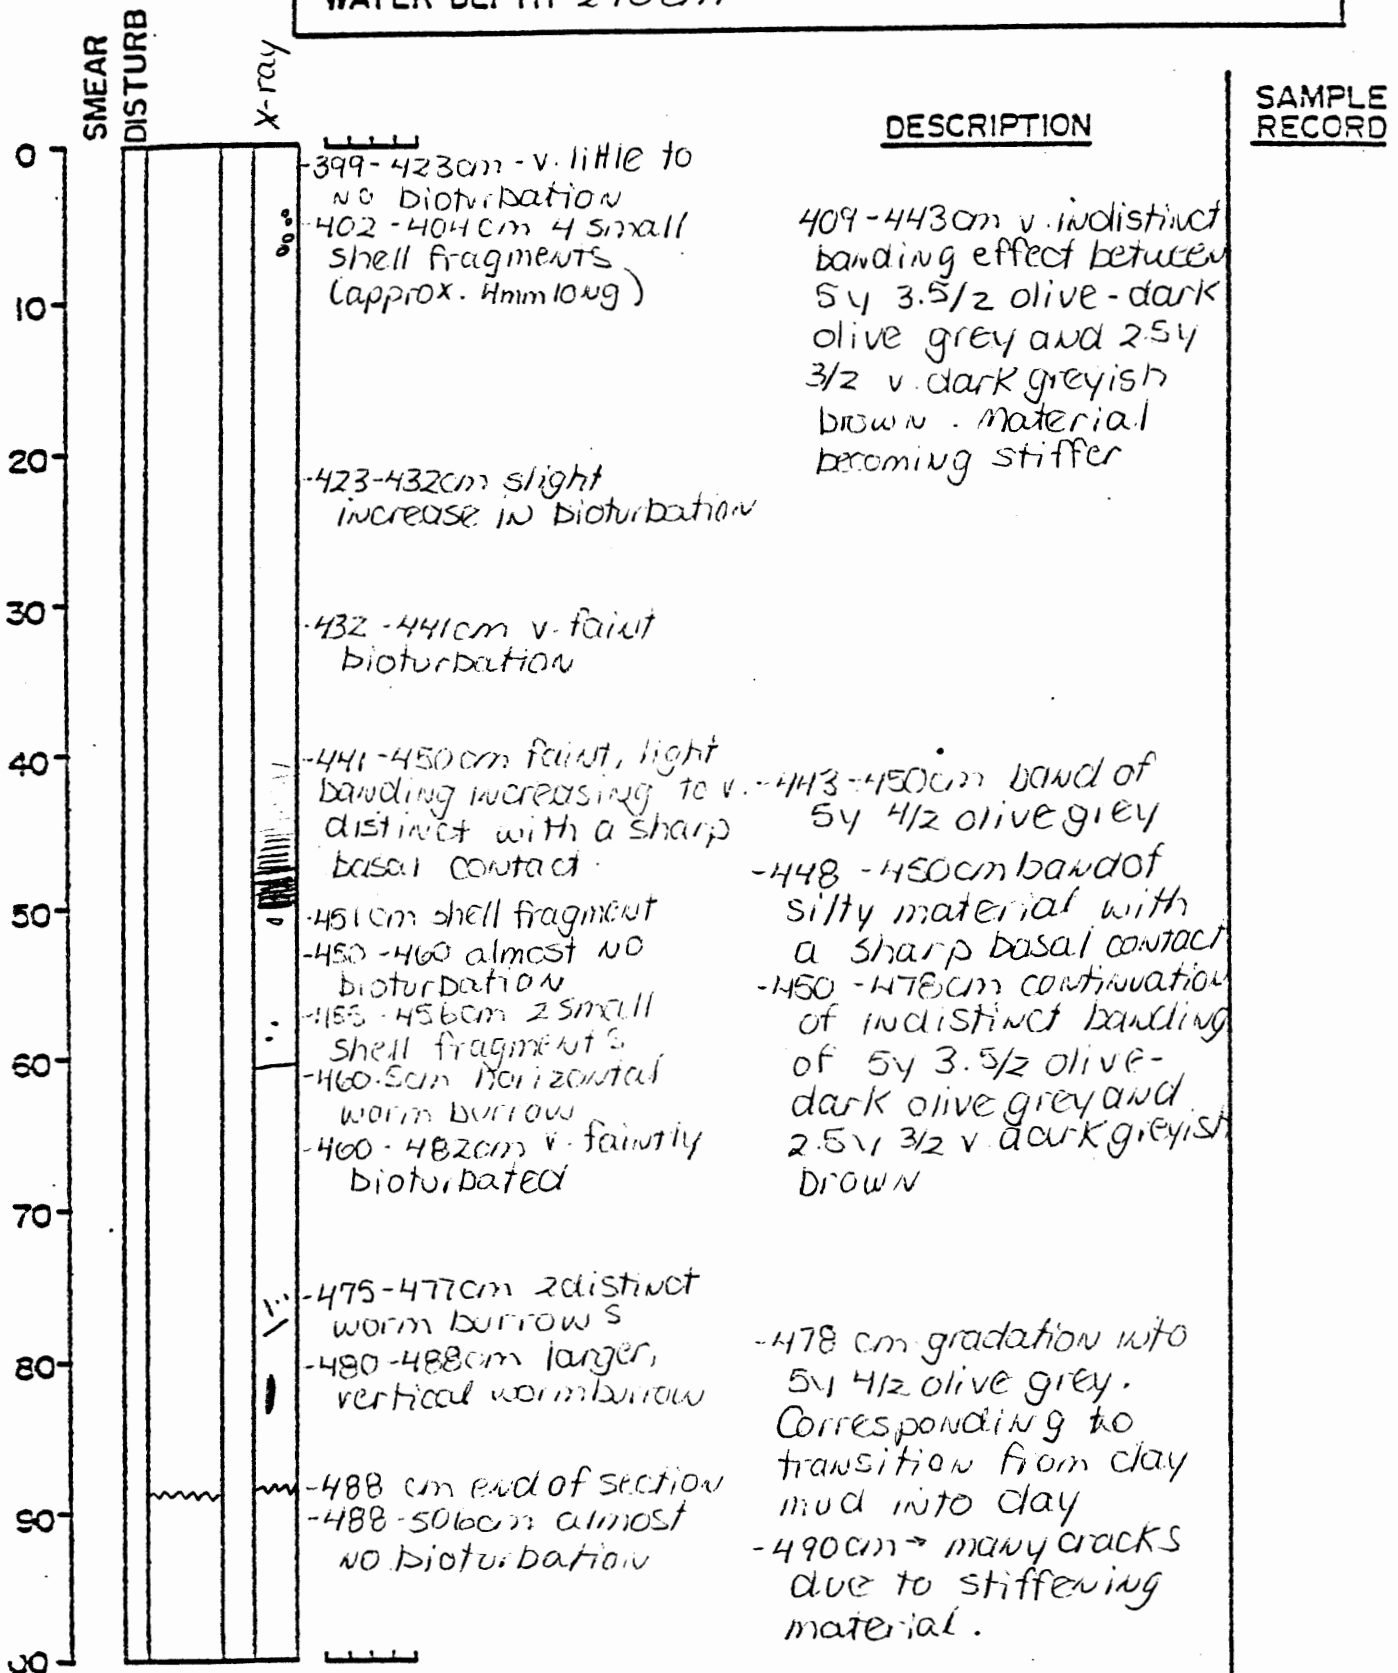 WATER DEPTH
SMEAR
DISTURB
x-ray
DESCRIPTION
SAMPLE
RECORD
0
10
20
30
40
50
60
70
80
90
-399-423cm-v. little to
no bioturbation
-402-404cm 4 small
shell fragments
(approx. 4mm long)
-423-432cm slight
increase in bioturbation
-432-441cm v. faint
bioturbation
-441-450cm faint, light
banding increasing to v.
distinct with a sharp
basal contact.
-451cm shell fragment
-450-460 almost no
bioturbation
-455-456cm 2 small
shell fragments
-460.5cm horizontal
worm burrow
-460-482cm v. faintly
bioturbated
-475-477cm 2 distinct
worm burrows
-480-488cm larger,
vertical worm burrow
-488 cm end of section
-488-506cm almost
no bioturbation
409-443cm v. indistinct
banding effect between
5y 3.5/2 olive-dark
olive grey and 2.5y
3/2 v. dark greyish
brown. Material
becoming stiffer
-443-450cm band of
5y 4/2 olive grey
-448-450cm band of
silty material with
a sharp basal contact
-450-478cm continuation
of indistinct banding
of 5y 3.5/2 olive-
dark olive grey and
2.5y 3/2 v dark greyish
brown
-478 cm gradation into
5y 4/2 olive grey.
Corresponding to
transition from clay
mud into clay
-490cm→ many cracks
due to stiffening
material.